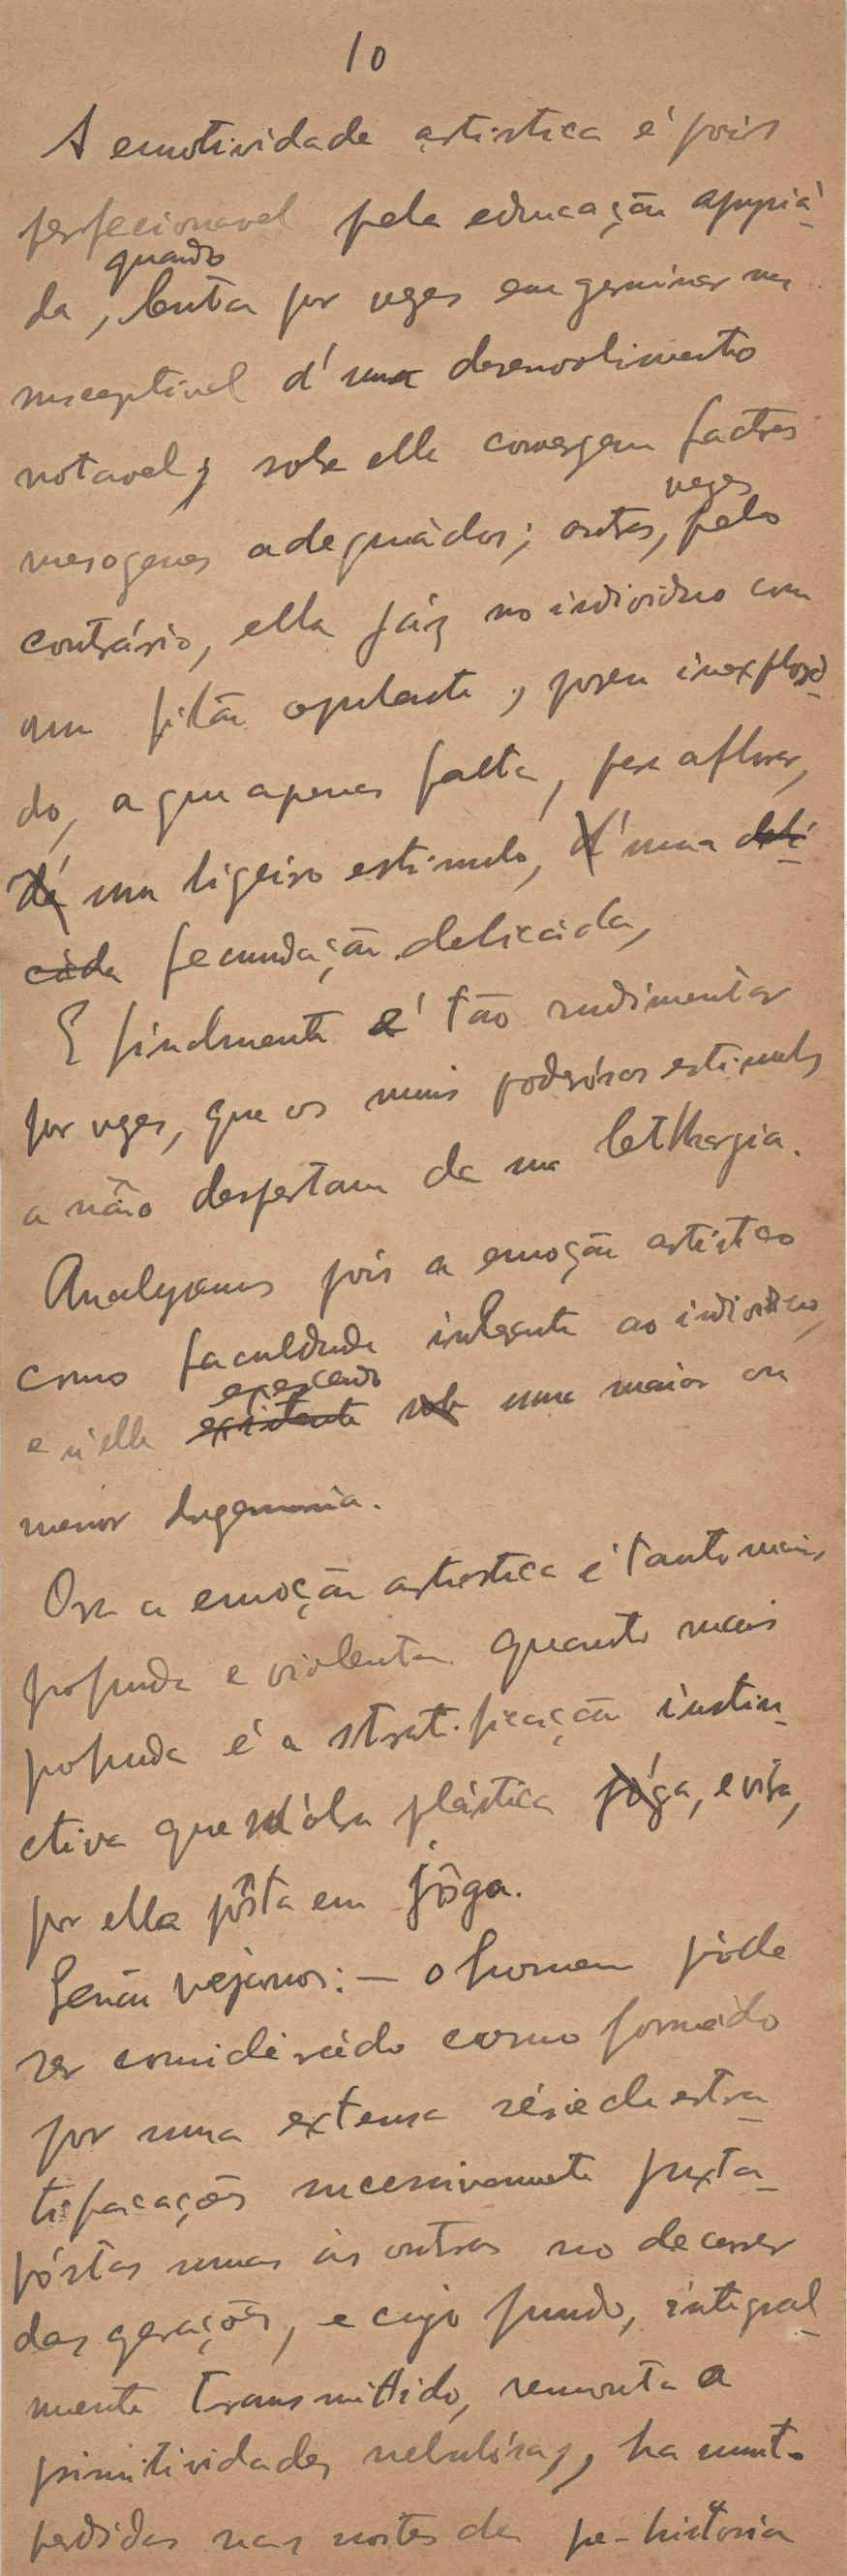 10
A emotividade artistica é pois
perfecionavel pela educação apropriá-
quando
da, lenta por vezes em germinar mas
susceptivel d'um desenvolvimento
notavel, sobre ella convergem factores
mesogenos adequádos; outras, vezes pelo
contrário, ella jáz no individuo com
um filão opulento, porem inexplorá-
do, a que apenas falta, para aflorar,
dé um ligeiro estimulo, d'uma deli-
cáda fecundação delicáda,
E finalmente é tão rudimentar
por vezes, que os mais poderósos estimulos
a não despertam da sua lethargia.
Analysamos pois a emoção artistica
como faculdade inherente ao individuo,
exercendo
e n'elle existente sob uma maior ou
menor hegemonia.
Ora a emoção artistica é tanto mais
profunda e violenta quanto mais
profunda é a stratificação instin-
ctiva que n'óbra plástica jóga, e vibra,
por ella pôsta em jôga.
Senão vejamos: — o homem póde
ser considerádo como formádo
por uma extensa série de estra-
tificações sucessivamente juxta-
póstas umas ás outras no decorrer
das gerações, e cujo fundo, integral-
mente transmittido, remonta a
primitividades nebulósas, ha muito
perdidas nas noites da pre-historia